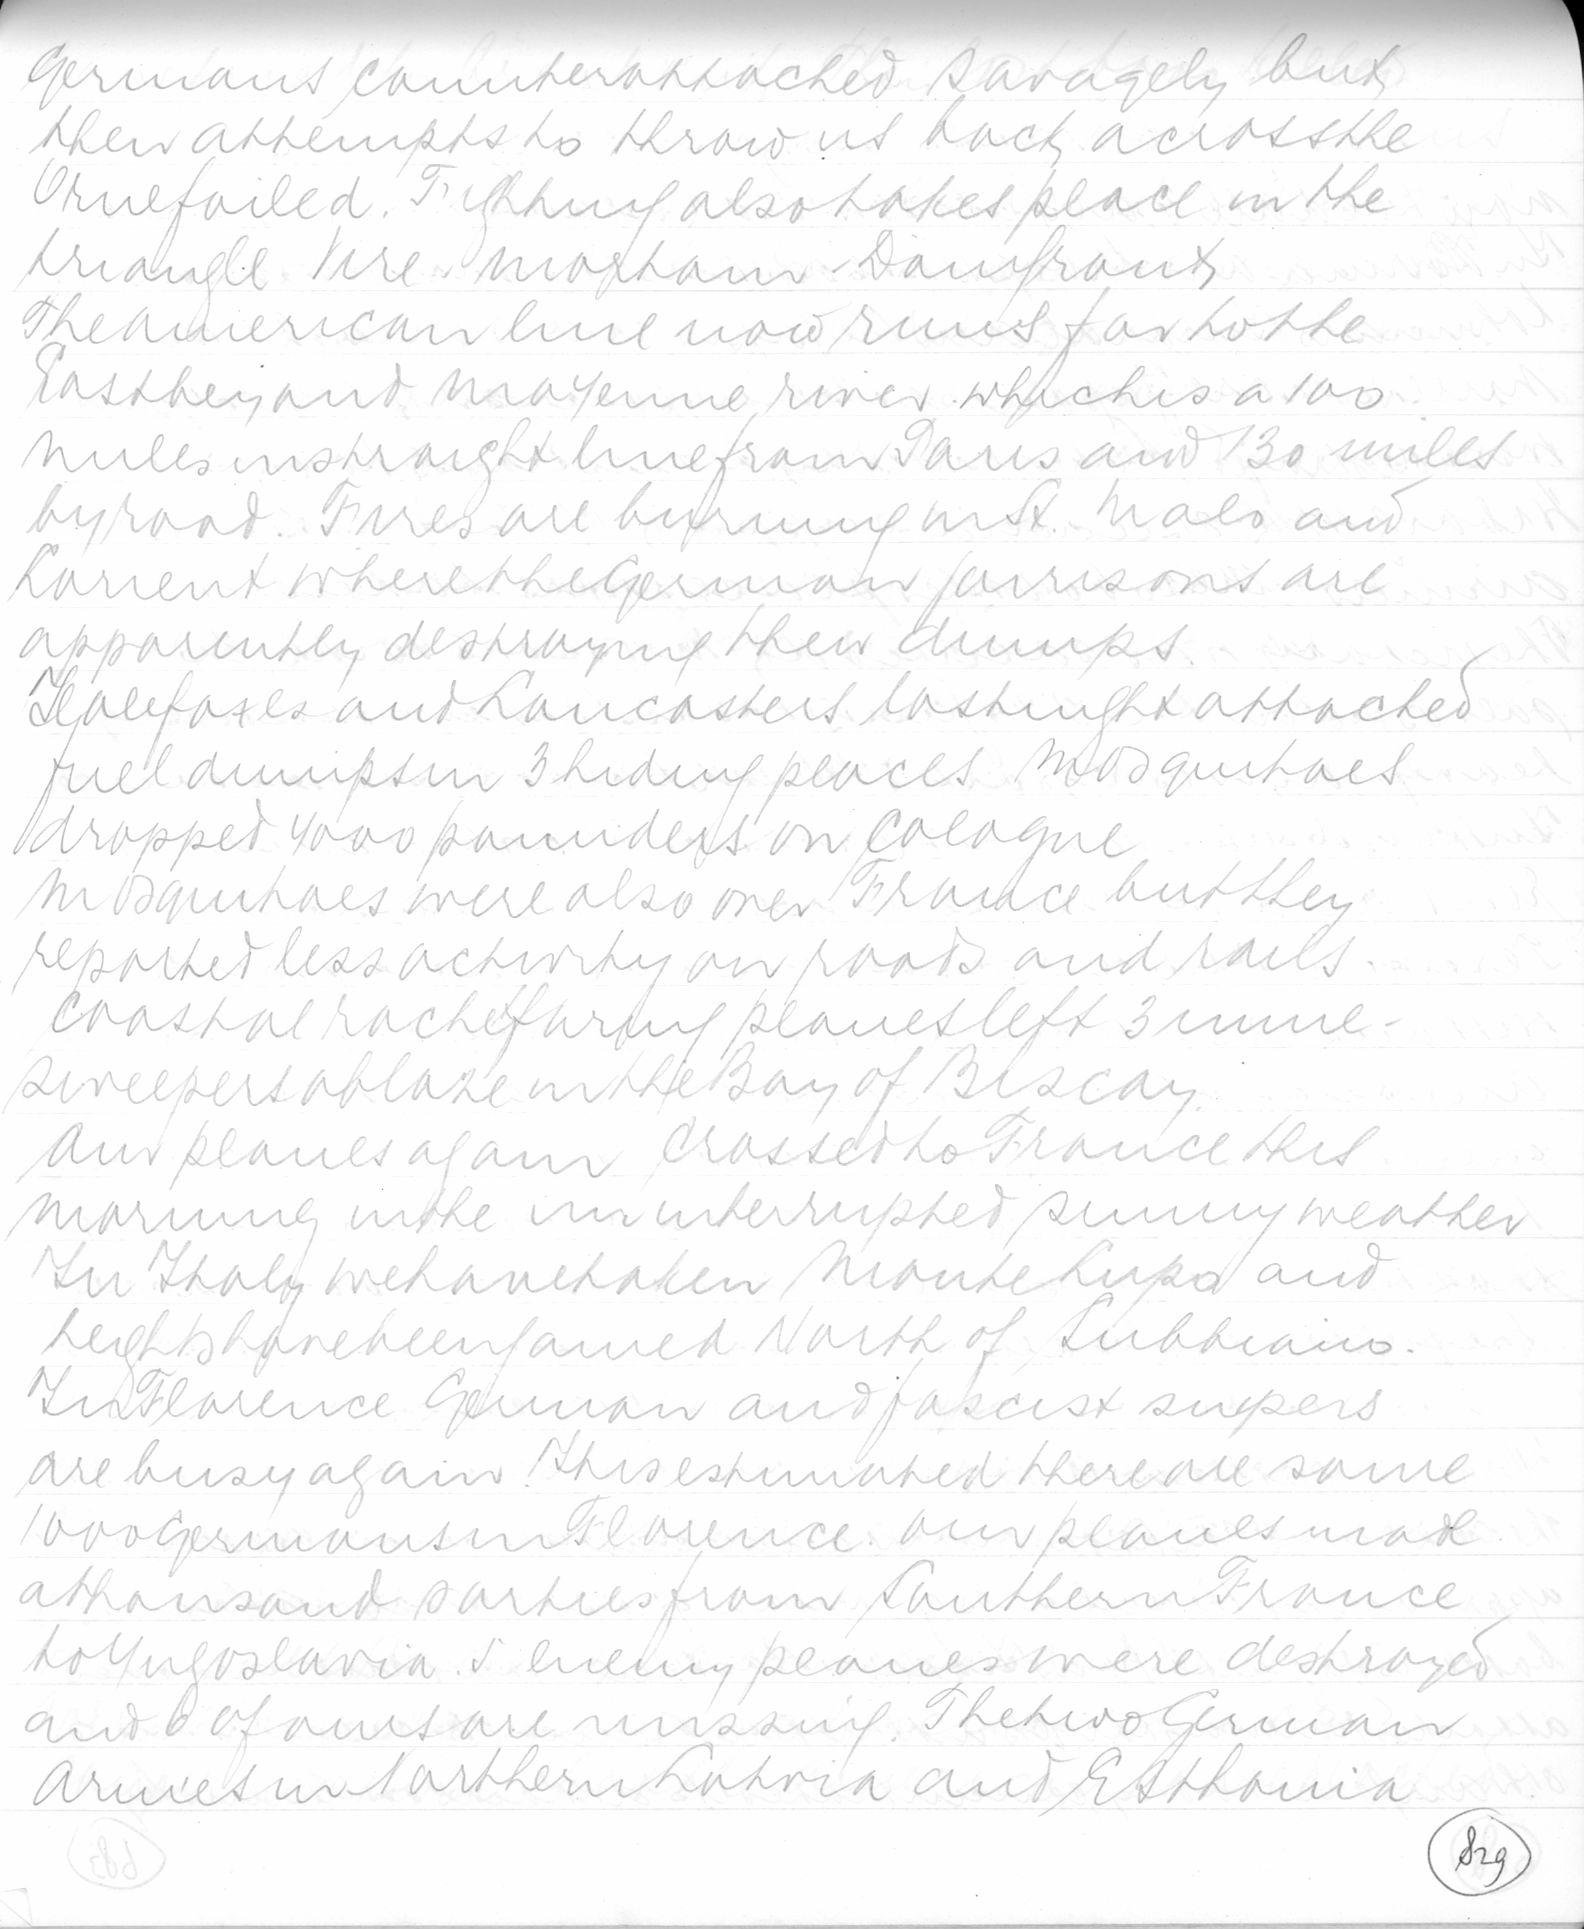 Germans counterattacked savagely but
their attempts to throw us back across the
Orne failed. Fighting also takes place in the
triangle Vire - Mortain - Domfront
The American line now runs far to the
East beyond Mayenne river which is a 100
miles in straight line from Paris and 130 miles
by road. Fires are burning in St. Malo and
Lorient where the German garrisons are
apparently destroying their dumps.
Halefaxes and Lancasters last night attacked
fuel dumps in 3 hiding places Mosquitoes
dropped 4000 pounders on Cologne
Mosquitoes were also over France but they
reported less activity on roads and rails.
Coastal rocketfiring planes left 3 mine-
sweepers ablaze in the Bay of Biscay.
Our planes again crossed to France this
morning in the uninterrupted sunny weather
In Italy we have taken Monte Lupo and
heights have been gained North of Subbiano.
In Florence German and fascist snipers
are busy again. It is estimated there are some
1000 Germans in Florence. Our planes made
a thousand sorties from Southern France
to Yugoslavia. 5 enemy planes were destroyed
and 6 of ours are missing. The two German
Armies in Northern Latvia and Esthonia
829